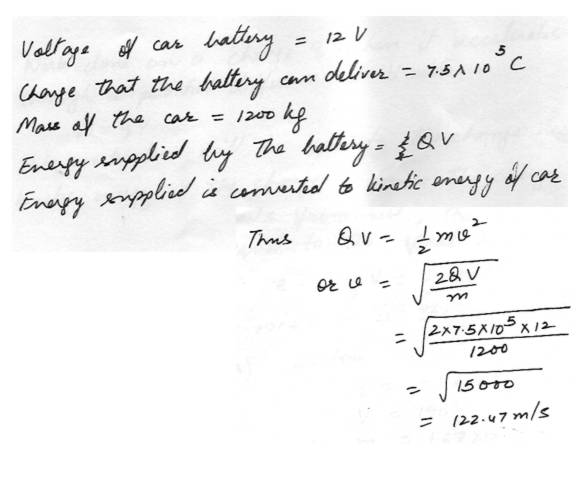 Voltage of car battery = 12 V
Charge that the battery can deliver = 7.5 x 10^5 C
Mass of the car = 1200 kg
Energy supplied by The battery = QV
Energy supplied is converted to kinetic energy of car
Thus QV = 1/2 mv^2
or v = √(2QV/m)
= √(2×7.5×10^5×12/1200)
= √15000
= 122.47 m/s